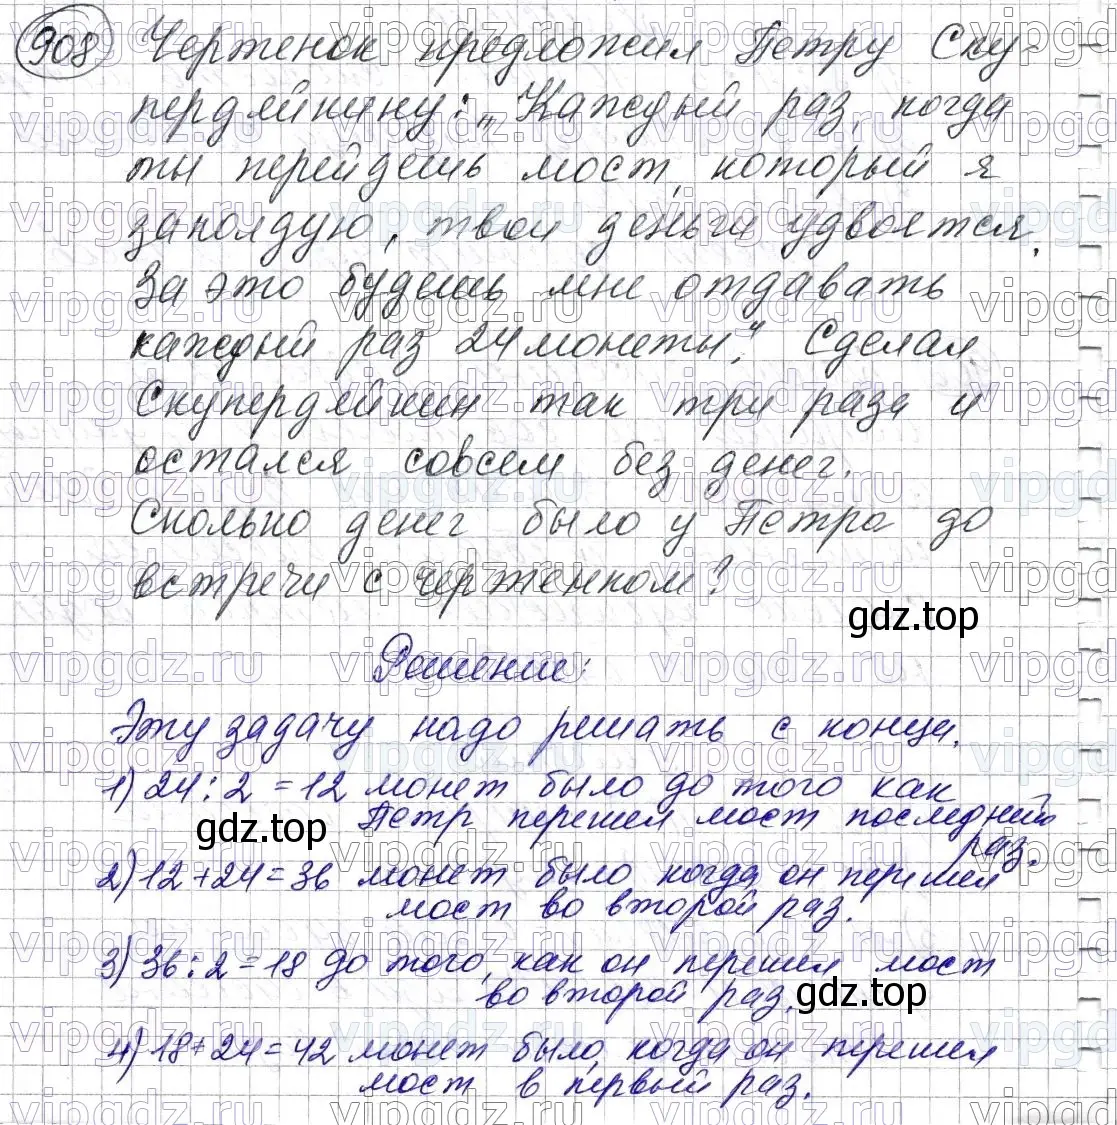 908 Чертенок предложил Петру Ску-
пердяйкину: „Каждый раз, когда
ты перейдешь мост, который я
заколдую, твои деньги удвоятся.
За это будешь мне отдавать
каждый раз 24 монеты". Сделал
Скупердяйкин так три раза и
остался совсем без денег.
Сколько денег было у Петра до
встречи с чертенком?
gdz.top
Решение:
Эту задачу надо решать с конца.
1) 24 : 2 = 12 монет было до того как
Петр перешел мост последний
gdz.top
раз.
2) 12 + 24 = 36 монет было когда он перешел
мост во второй раз.
3) 36 : 2 = 18 до того, как он перешел мост
во второй раз.
gdz.top
4) 18 + 24 = 42 монет было, когда он перешел
мост в первый раз.